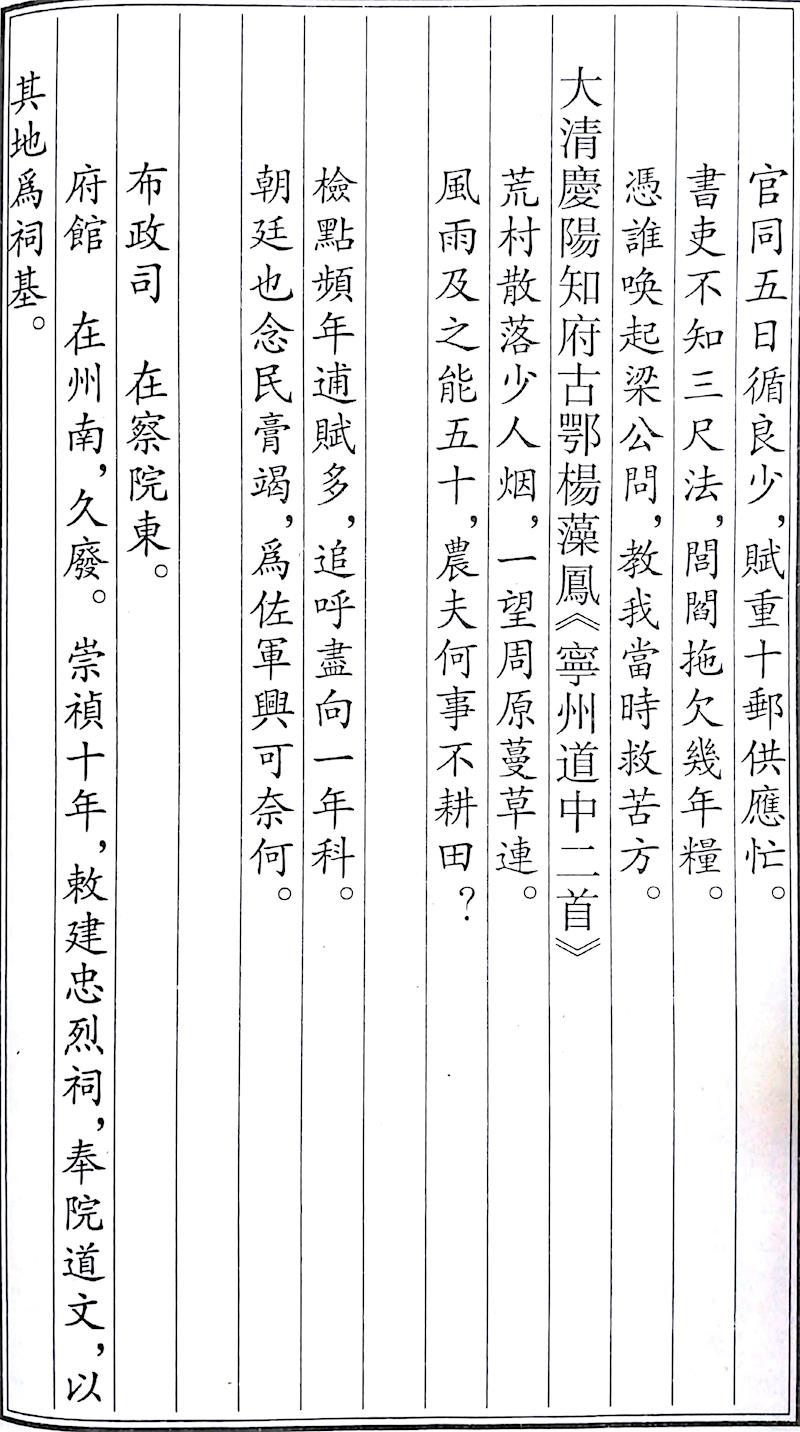 官同五日循良少，賦重十郵供應忙。
書吏不知三尺法，閭閻拖欠幾年糧。
憑誰喚起梁公問，教我當時救苦方。
大清慶陽知府古鄂楊藻鳳《寧州道中二首》
荒村散落少人烟，一望周原蔓草連。
風雨及之能五十，農夫何事不耕田？
檢點頻年逋賦多，追呼盡向一年科。
朝廷也念民膏竭，爲佐軍興可奈何。
布政司　在察院東。
府館　在州南，久廢。崇禎十年，敕建忠烈祠，奉院道文，以
其地爲祠基。